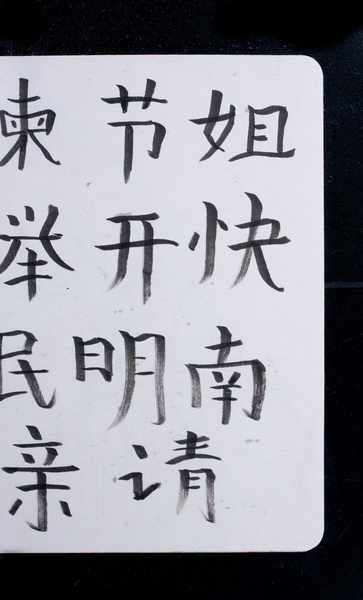 节姐
举开快
民明南
亲请